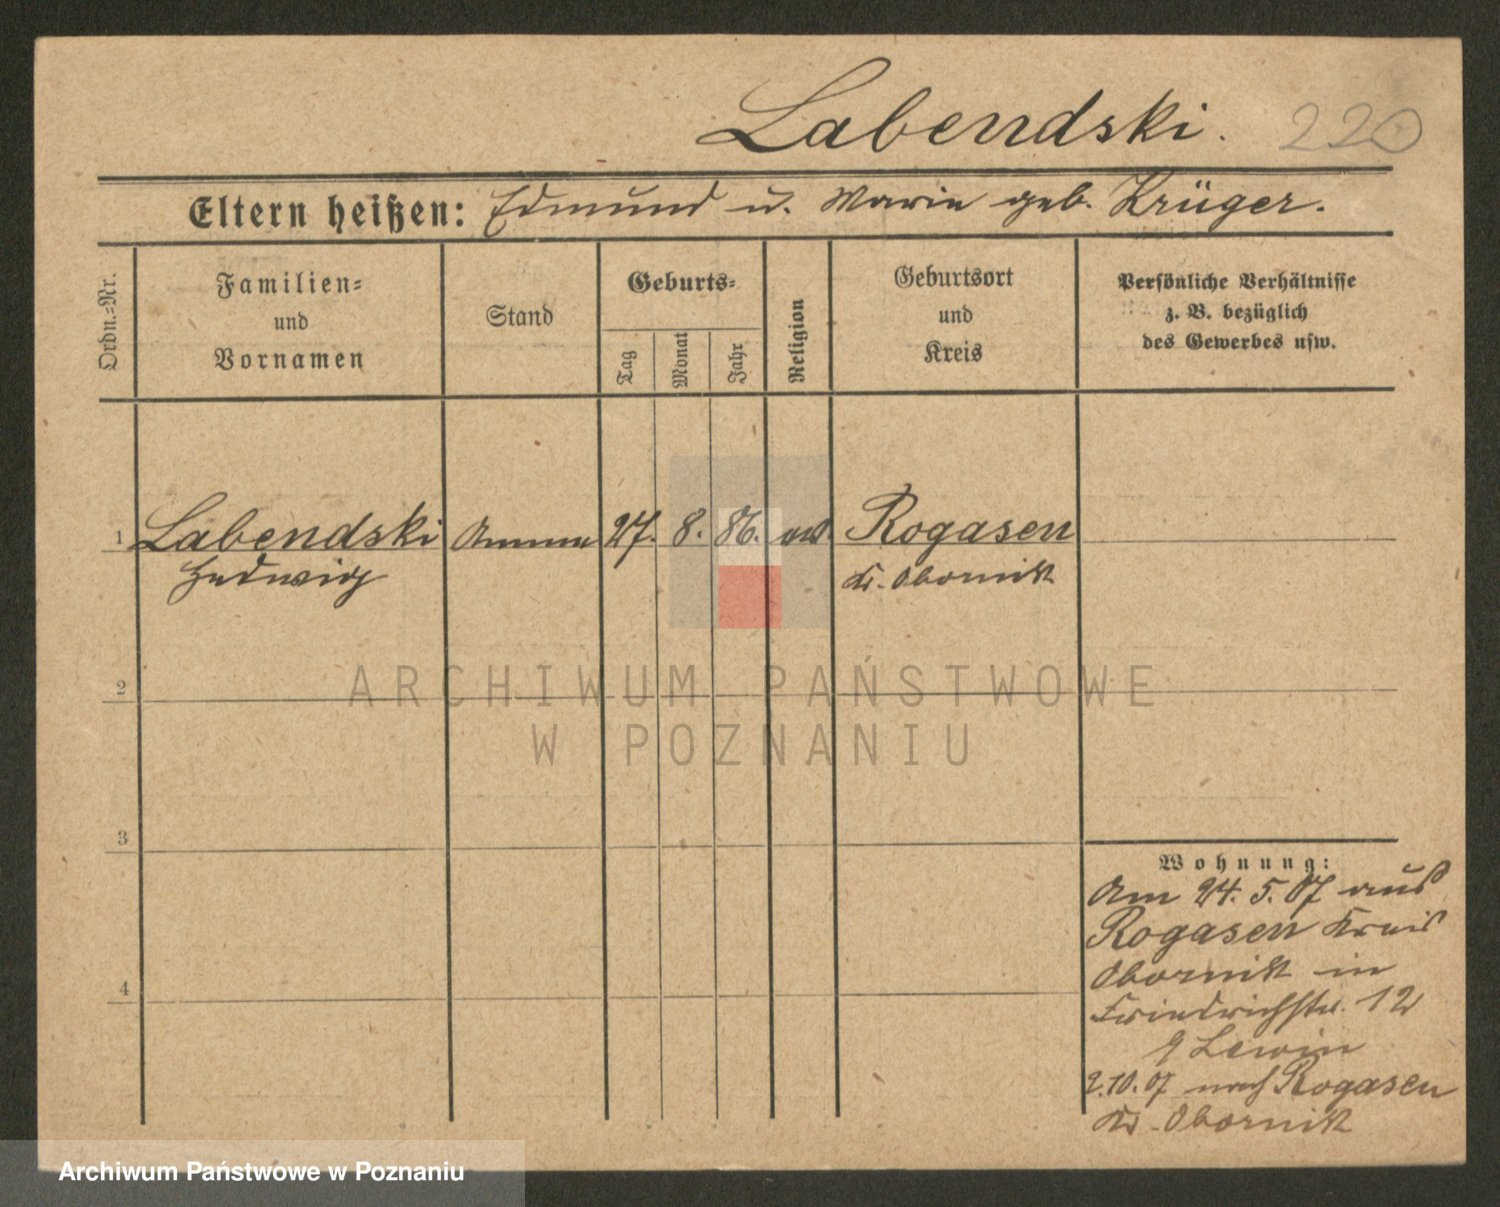 Labendski. 220
Eltern heißen: Edmund u. Marie geb. Krüger.
Ordn.-Nr.
Familien-
und
Vornamen
Stand
Geburts-
Tag
Monat
Jahr
Religion
Geburtsort
und
Kreis
Persönliche Verhältnisse
z. B. bezüglich
des Gewerbes usw.
1 Labendski Amme 27. 8. 86. ev. Rogasen
Hedwig Kr. Obornik
2
3
4
Wohnung:
Am 24. 5. 07 aus
Rogasen Kreis
Obornik in
Friedrichstr. 12
Lewin
2.10.07 nach Rogasen
Kr. Obornik
ARCHIWUM PAŃSTWOWE
W POZNANIU
Archiwum Państwowe w Poznaniu